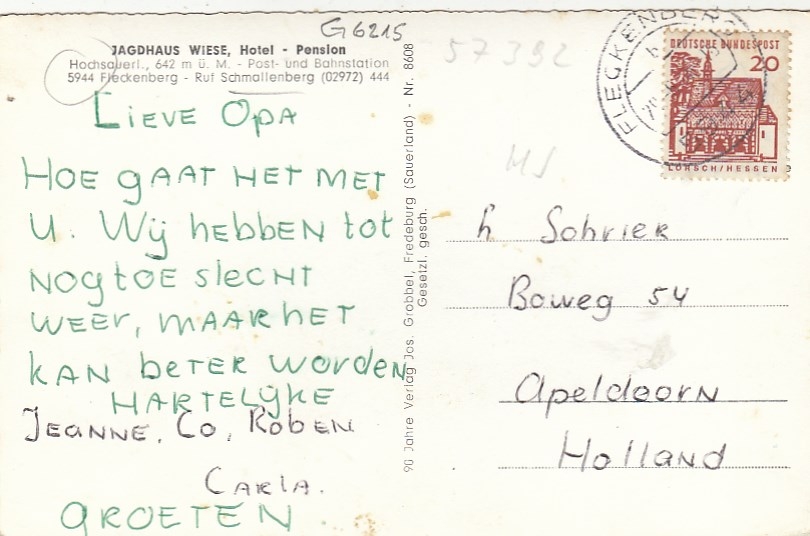 G6215
JAGDHAUS WIESE, Hotel - Pension
Hochsauerl., 642 m ü. M. - Post- und Bahnstation
5944 Fleckenberg - Ruf Schmallenberg (02972) 444
LIEVE OPA
HOE gAAT HET MET
U. Wij hEbbEN tot
NOg toE slECHT
WEEr, MAAR HET
KAN bETER WORdEN
HARTELIJKE
JEANNE, Co, RobEN
CARlA.
GROETEN
90 Jahre Verlag Jos. Grobbel, Fredeburg (Sauerland) - Nr. 8608
Gesetzl. gesch.
57392
MJ
FLECKENBERG
DEUTSCHE BUNDESPOST
20
LORSCH/HESSEN
h Sohrier
Boweg 54
Apeldoorn
Holland